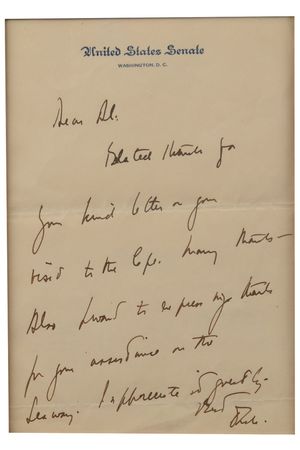 United States Senate
WASHINGTON, D. C.
Dear Al:
Belated thanks for
your kind letter on your
visit to the Cape. Many thanks—
Also I want to express my thanks
for your assistance on the
Seaway. I appreciate it greatly.
Best